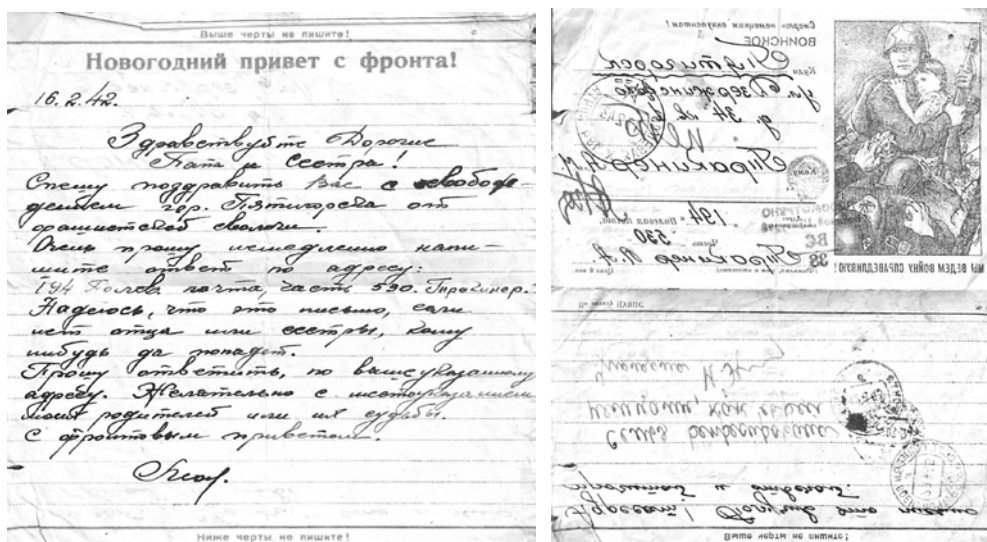 Выше черты не пишите!
Новогодний привет с фронта!
16.2.42.
Здравствуйте Дорогие
Папа и Сестра!
Спешу поздравить Вас с освобож-
дением гор. Пятигорска от
фашистской сволочи.
Очень прошу немедленно напи-
шите ответ по адресу:
194 Полев. почта, часть 530.
Надеюсь, что это письмо, если
нет отца или сестры, кому
нибудь да попадет.
Прошу ответить, по вышеуказанному
адресу. Желательно с местоуказанием
моих родителей или их судьбы.
С фронтовым приветом.
Ниже черты не пишите!
Смерть немецким оккупантам!
ВОИНСКОЕ
Куда Пятигорск
ул. Дзержинского
д 34
Кому
194 Полевая почта,
часть 530
МЫ ВЕДЕМ ВОЙНУ СПРАВЕДЛИВУЮ!
По заказу ЦУППС
немцами, как евреи
Семья
прочитай и отвечай.
Адресат! Получив это письмо
Выше черты не пишите!